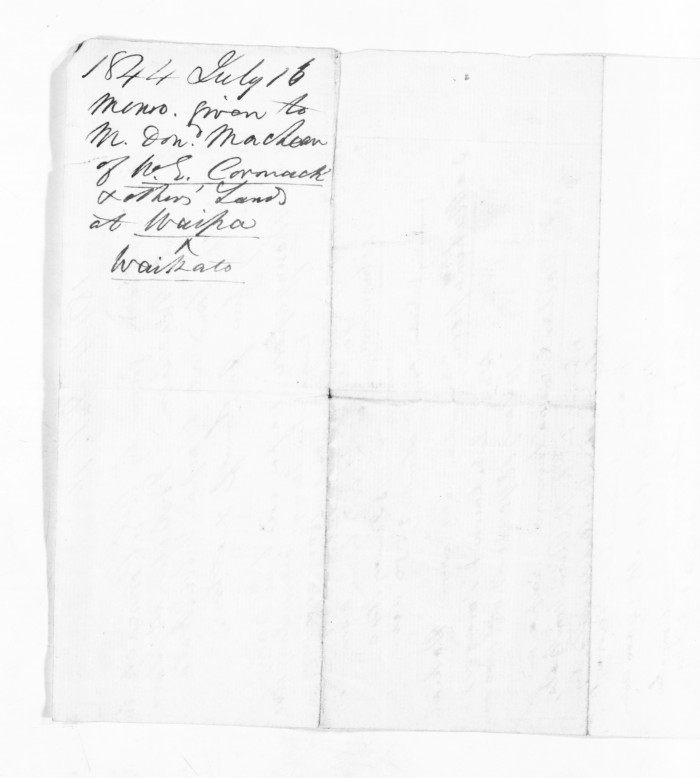 1844 July 16
Memo. given to
M. Don.d Maclean
of W. E. Cormack
& others' Lands
at Waipa
^
Waikato